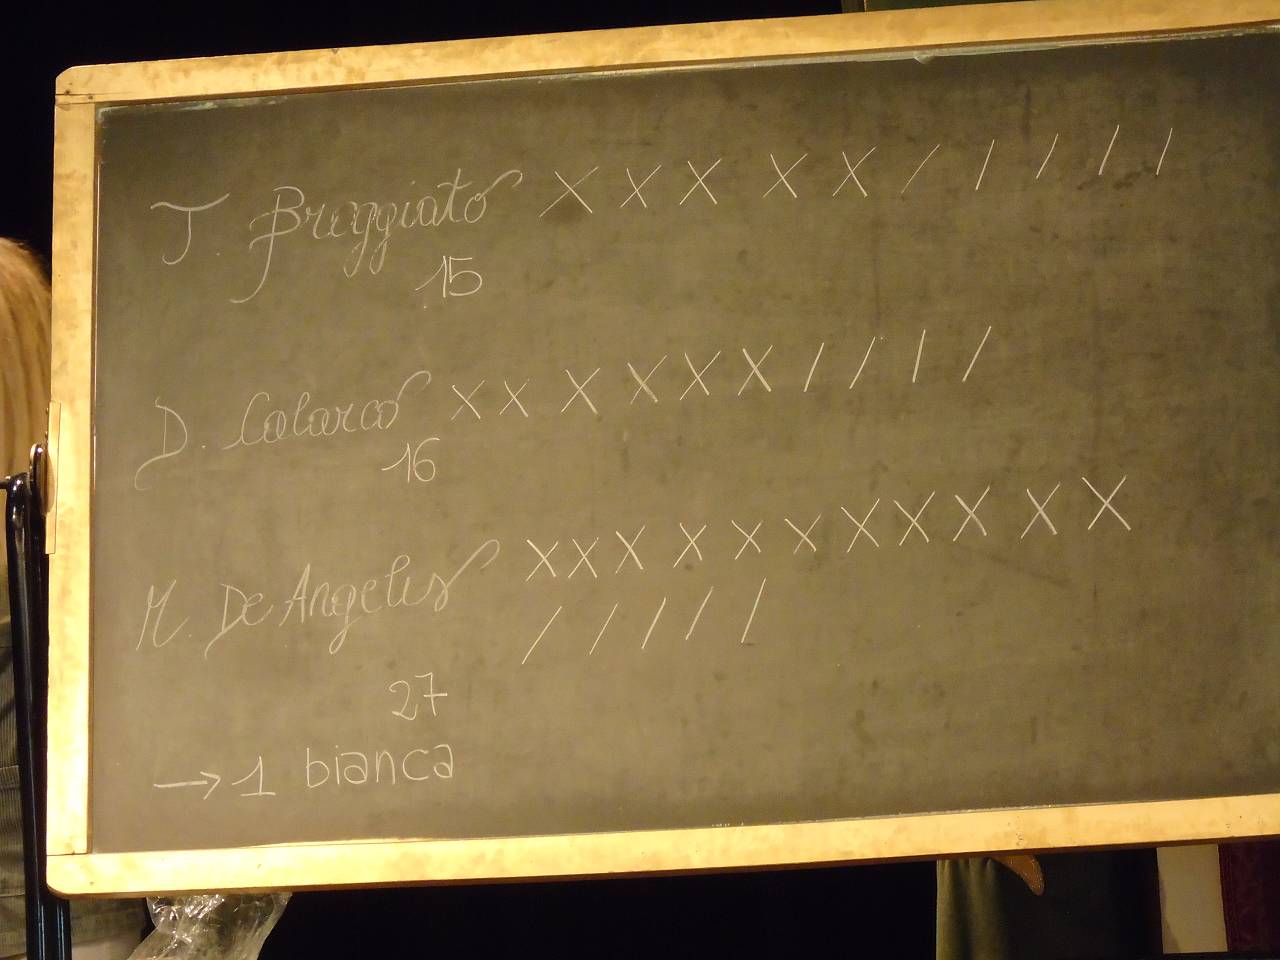 T. Breggiato X X X X X / / / / /
15
D. Colarco X X X X X X / / / /
16
M. De Angelis X X X X X X X X X X X
/ / / / /
27
→ 1 bianca